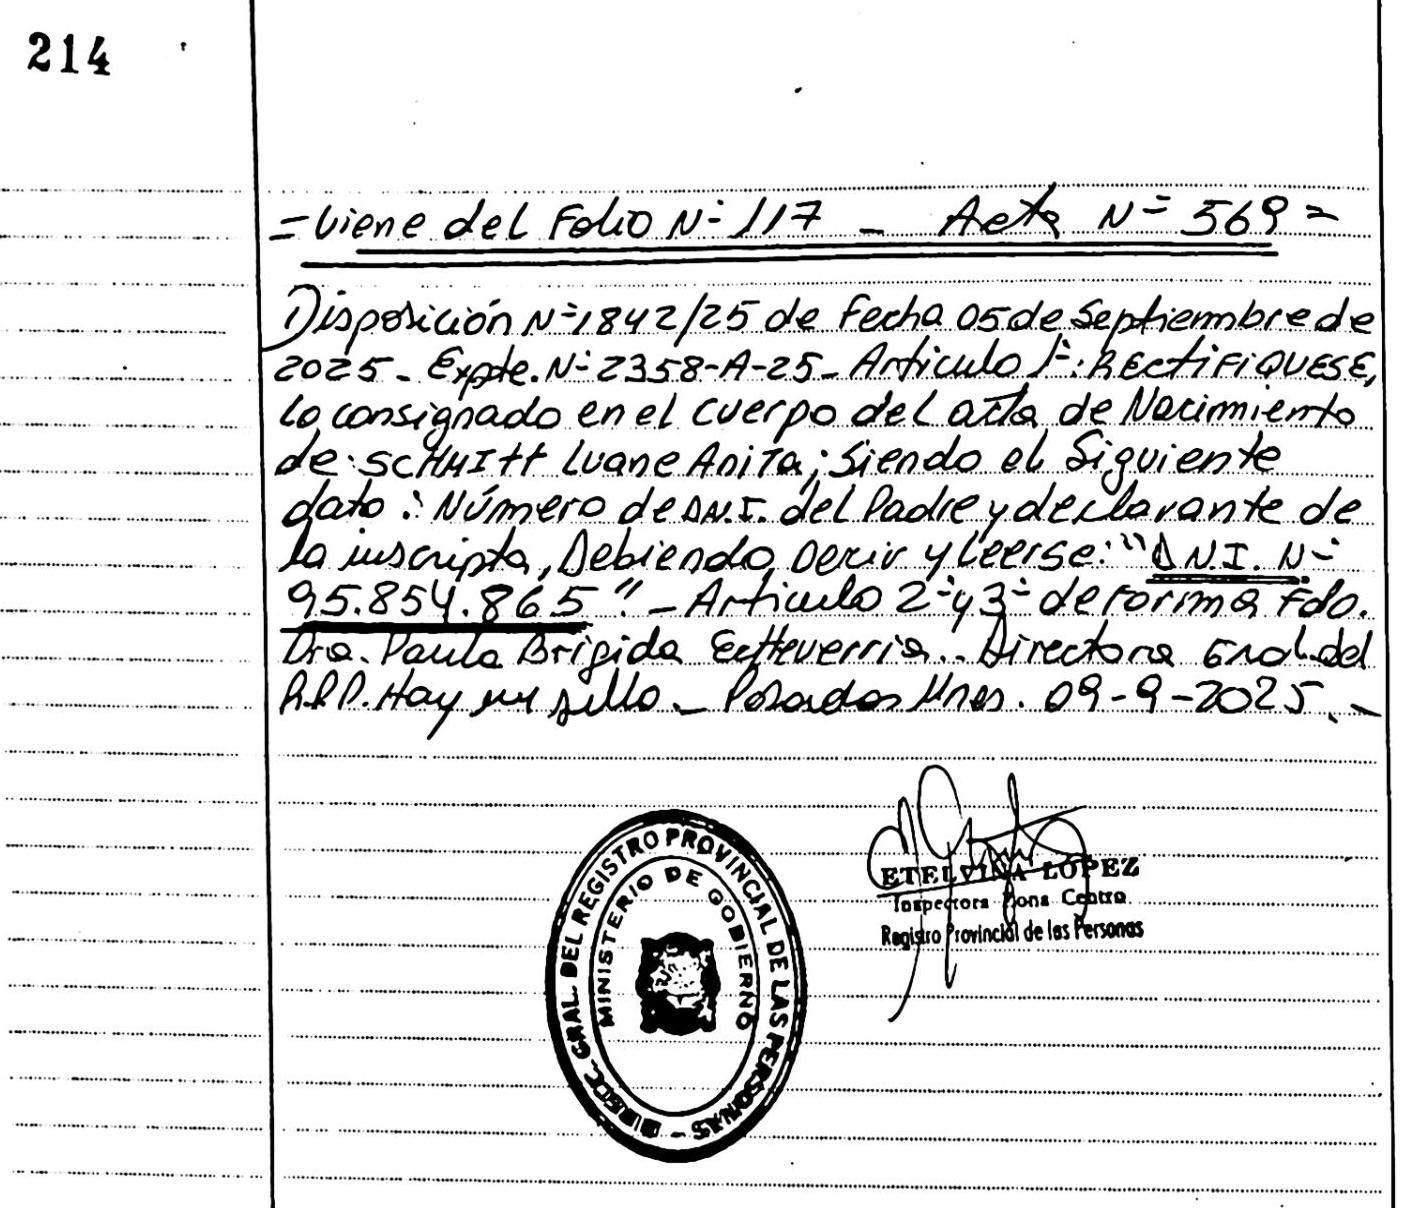 214
= Viene del Folio Nº 117 - Acta Nº 569 =
Disposición Nº 1842/25 de Fecha 05 de Septiembre de
2025 - Expte. Nº 2358-A-25 - Articulo 1º: RECTIFIQUESE,
lo consignado en el cuerpo del acta de Nacimiento
de: SCHMITT Luane Anita; Siendo el Siguiente
dato: Número de D.N.I. del Padre y declarante de
la inscripta, Debiendo Decir y Leerse: "D.N.I. Nº
95.854.865" - Articulo 2º y 3º de Forma Fdo.
Dra. Paula Brigida Echeverria - Directora Gral. del
R.P.P. Hay un sello - Posadas Mnes. 09-9-2025.-
ETELVINA LOPEZ
Inspectora Zona Centro
Registro Provincial de las Personas
DIRECC. GRAL. DEL REGISTRO PROVINCIAL DE LAS PERSONAS -
MINISTERIO DE GOBIERNO